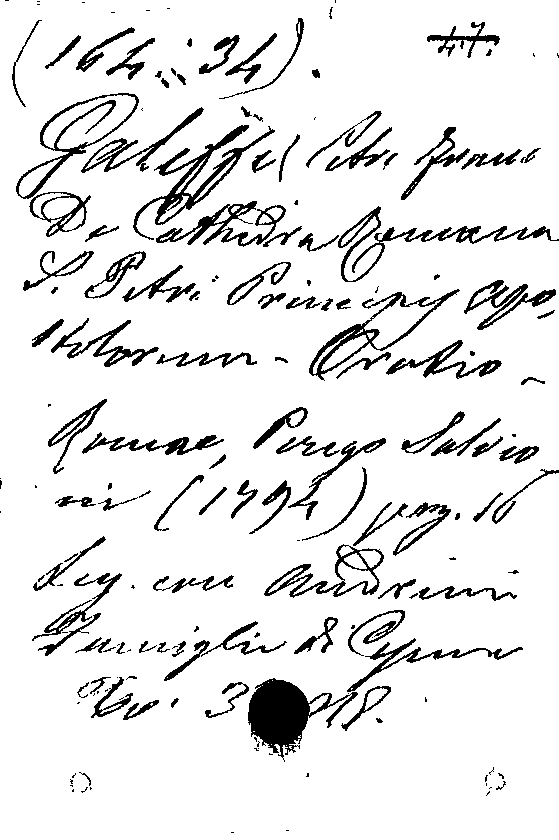 (164.. 34).
47.
Galeffi Petri Franc
De Cathedra Romana
S. Petri Principis Apo,
stolorum - Oratio -
Romae, Perego Salvio
ni (1794) pag. 16
Leg. con Andreini
Famiglie di
3 018.